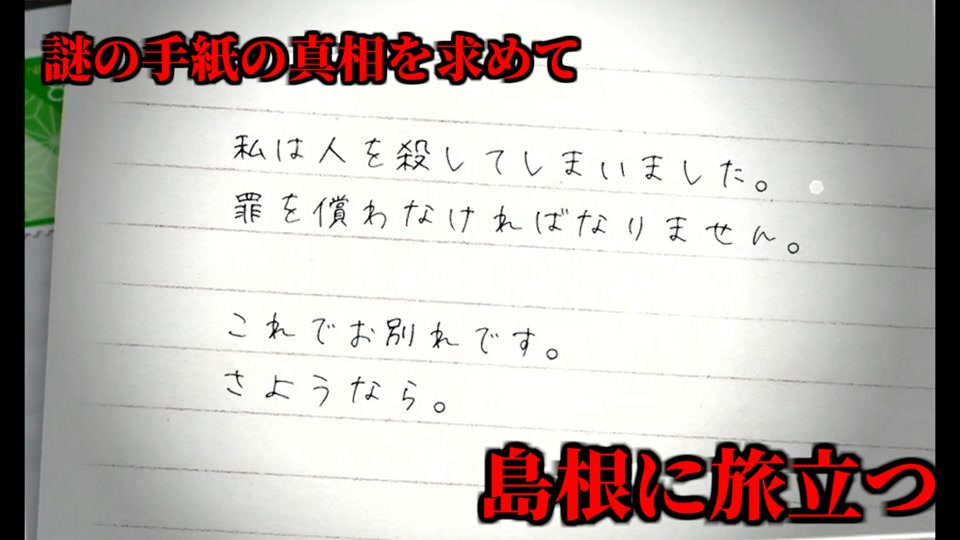 謎の手紙の真相を求めて
私は人を殺してしまいました。
罪を償わなければなりません。
これでお別れです。
さようなら。
島根に旅立つ